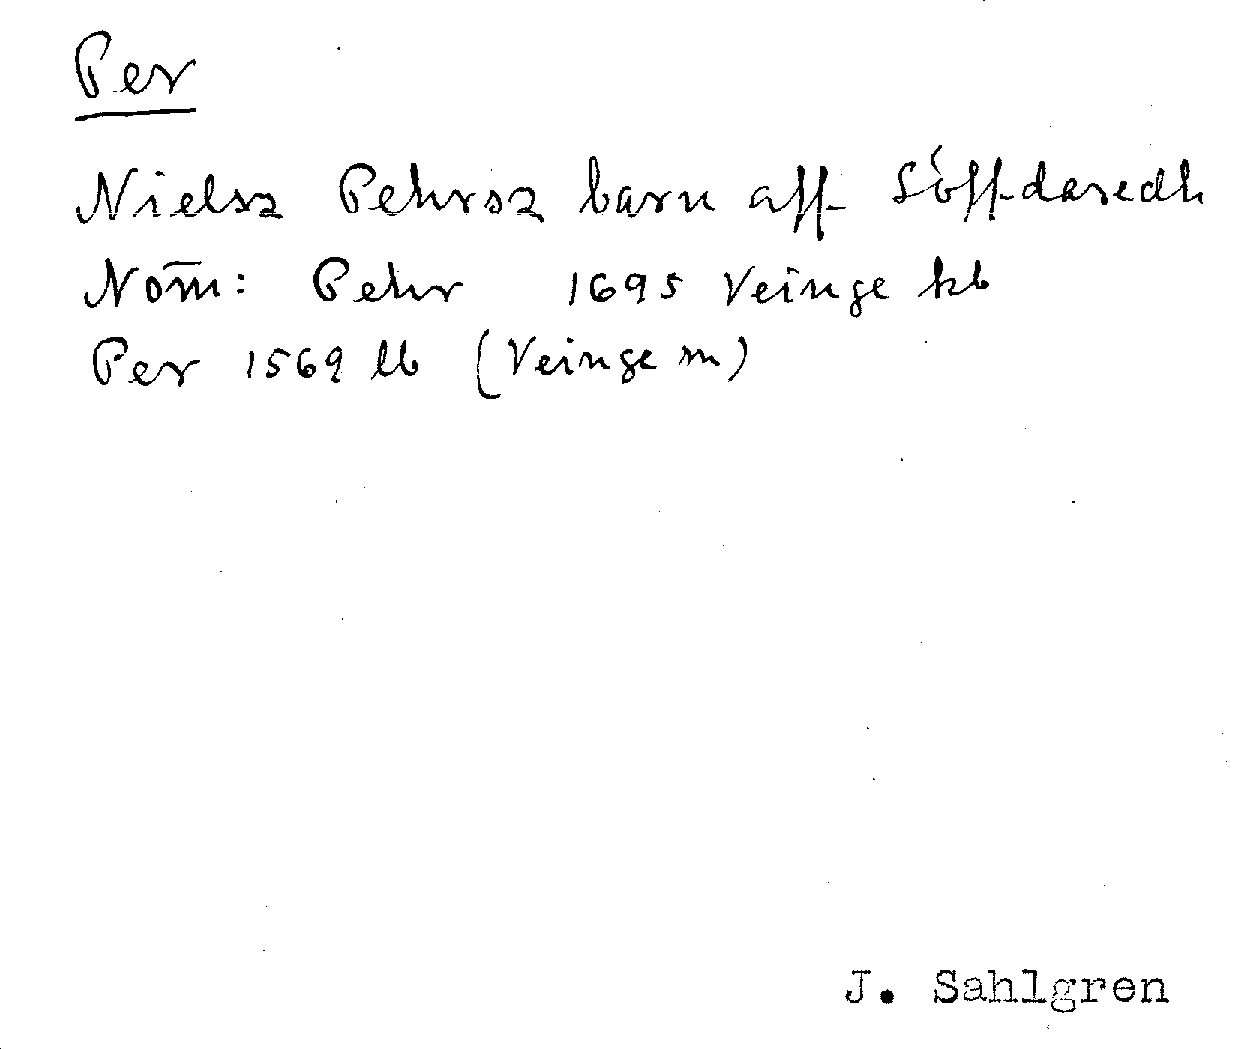 Per
Nielsz Pehrsz barn aff Söffdaredh
Nom̄: Pehr 1695 Veinge kb
Per 1569 lb (Veinge sn)
J. Sahlgren